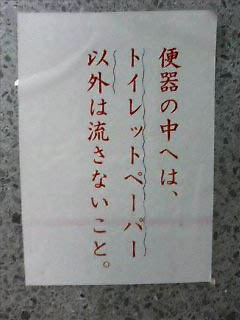 便器の中へは、
トイレットペーパー
以外は流さないこと。